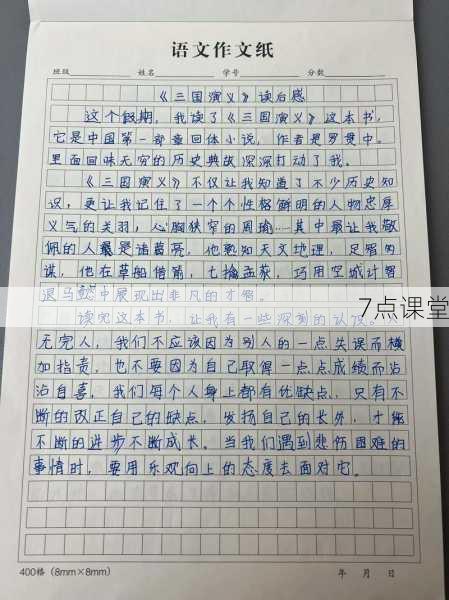 语文作文纸
班级 姓名 学号 分数
《三国演义》读后感
这个假期，我读了《三国演义》这本书，
它是中国第一部章回体小说，作者是罗贯中。
里面回味无穷的历史典故深深打动了我。
《三国演义》不仅让我知道了不少历史知
识，更让我记住了一个个性格鲜明的人物忠厚
义气的关羽，心胸狭窄的周瑜……其中最让我敬
佩的人是诸葛亮，他熟知天文地理，足智多
谋，他在草船借箭，七擒孟获，巧用空城计智
退马懿中展现出非凡的才智。
7点课堂
读完这本书，让我有一些深刻的认识。
无完人，我们不应该因为别人的一点失误而横
加指责，也不要因为自己取得一点点成绩而沾
沾自喜，我们每个人身上都有优缺点，只有不
断的改正自己的缺点，发扬自己的长处，才能
不断的进步不断成长。当我们遇到悲伤困难的
事情时，要用乐观向上的态度去面对它。
400格（8mm×8mm） 年 月 日